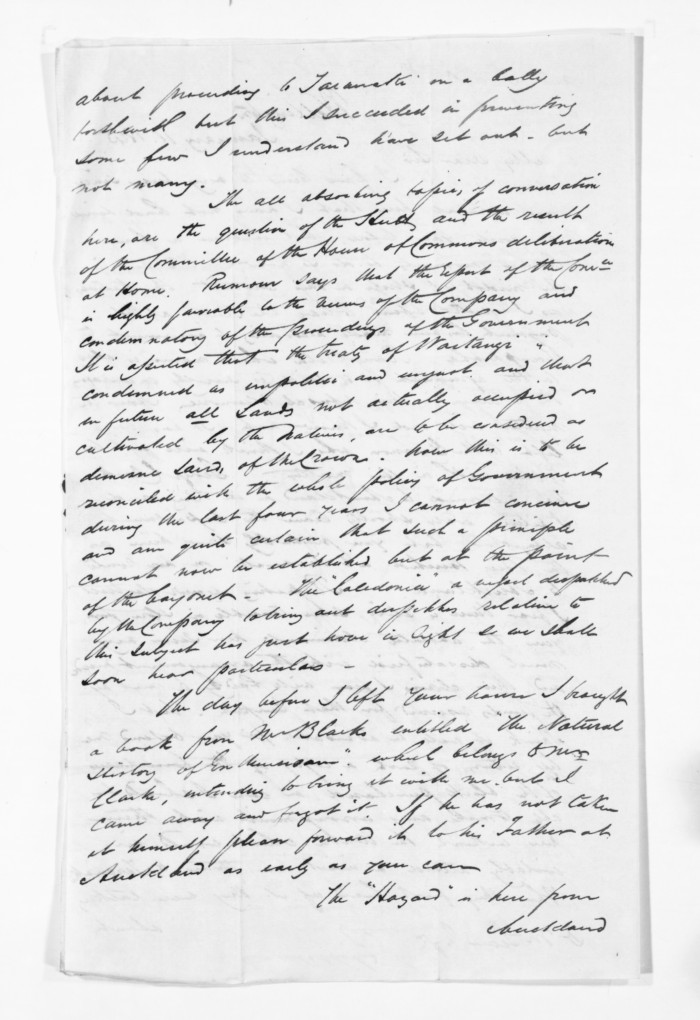 about proceeding to Taranaki in a body
forthwith but this I succeeded in preventing
some few I understand have set out - but
not many.
The all absorbing topics of conversation
here, are the question of the Hutt, and the result
of the Committee of the House of Commons deliberation
at Home. Rumour says that the report of the Comee
is highly favorable to the views of the Company and
condemnatory of the proceedings of the Government
It is asserted that the treaty of Waitangi is
condemned as impolitic and unjust and that
in future all Lands not actually occupied or
cultivated by the Natives, are to be considered as
demesne Lands of the Crown. how this is to be
reconciled with the whole policy of Government
during the last four years I cannot conceive
and am quite certain that such a principle
cannot now be established but at the point
of the bayonet - The "Caledonia" a vessel despatched
by the Company to bring out despatches relative to
this subject has just hove in sight so we shall
soon hear particulars -
The day before I left your house I brought
a book from Mr Blacks entitled "The Natural
History of Enthusiasm" which belongs to Mr
Clarke, intending to bring it with me but I
came away and forgot it. If he has not taken
it himself please forward it to his Father at
Auckland as early as you can
The "Hazard" is here from
Auckland